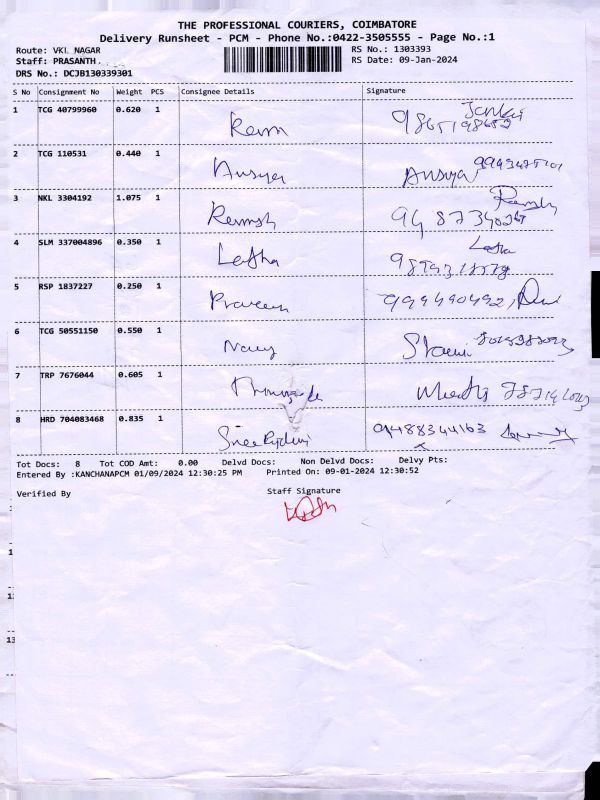 THE PROFESSIONAL COURIERS, COIMBATORE
Delivery Runsheet - PCM - Phone No.:0422-3505555 - Page No.:1
Route: VKL NAGAR RS No.: 1303393
Staff: PRASANTH. RS Date: 09-Jan-2024
DRS No.: DCJB130339301
S No Consignment No Weight PCS Consignee Details Signature
1 TCG 40799960 0.620 1
2 TCG 110531 0.440 1 Ansuya Ansuya
3 NKL 3304192 1.075 1 Ramesh
4 SLM 337004896 0.350 1 Latha Latha
5 RSP 1837227 0.250 1 Praveen
6 TCG 50551150 0.550 1 Nancy
7 TRP 7676044 0.605 1
8 HRD 704083468 0.835 1 9488344163
Tot Docs: 8 Tot COD Amt: 0.00 Delvd Docs: Non Delvd Docs: Delvy Pts:
Entered By :KANCHANAPCM 01/09/2024 12:30:25 PM Printed On: 09-01-2024 12:30:52
Verified By Staff Signature
13